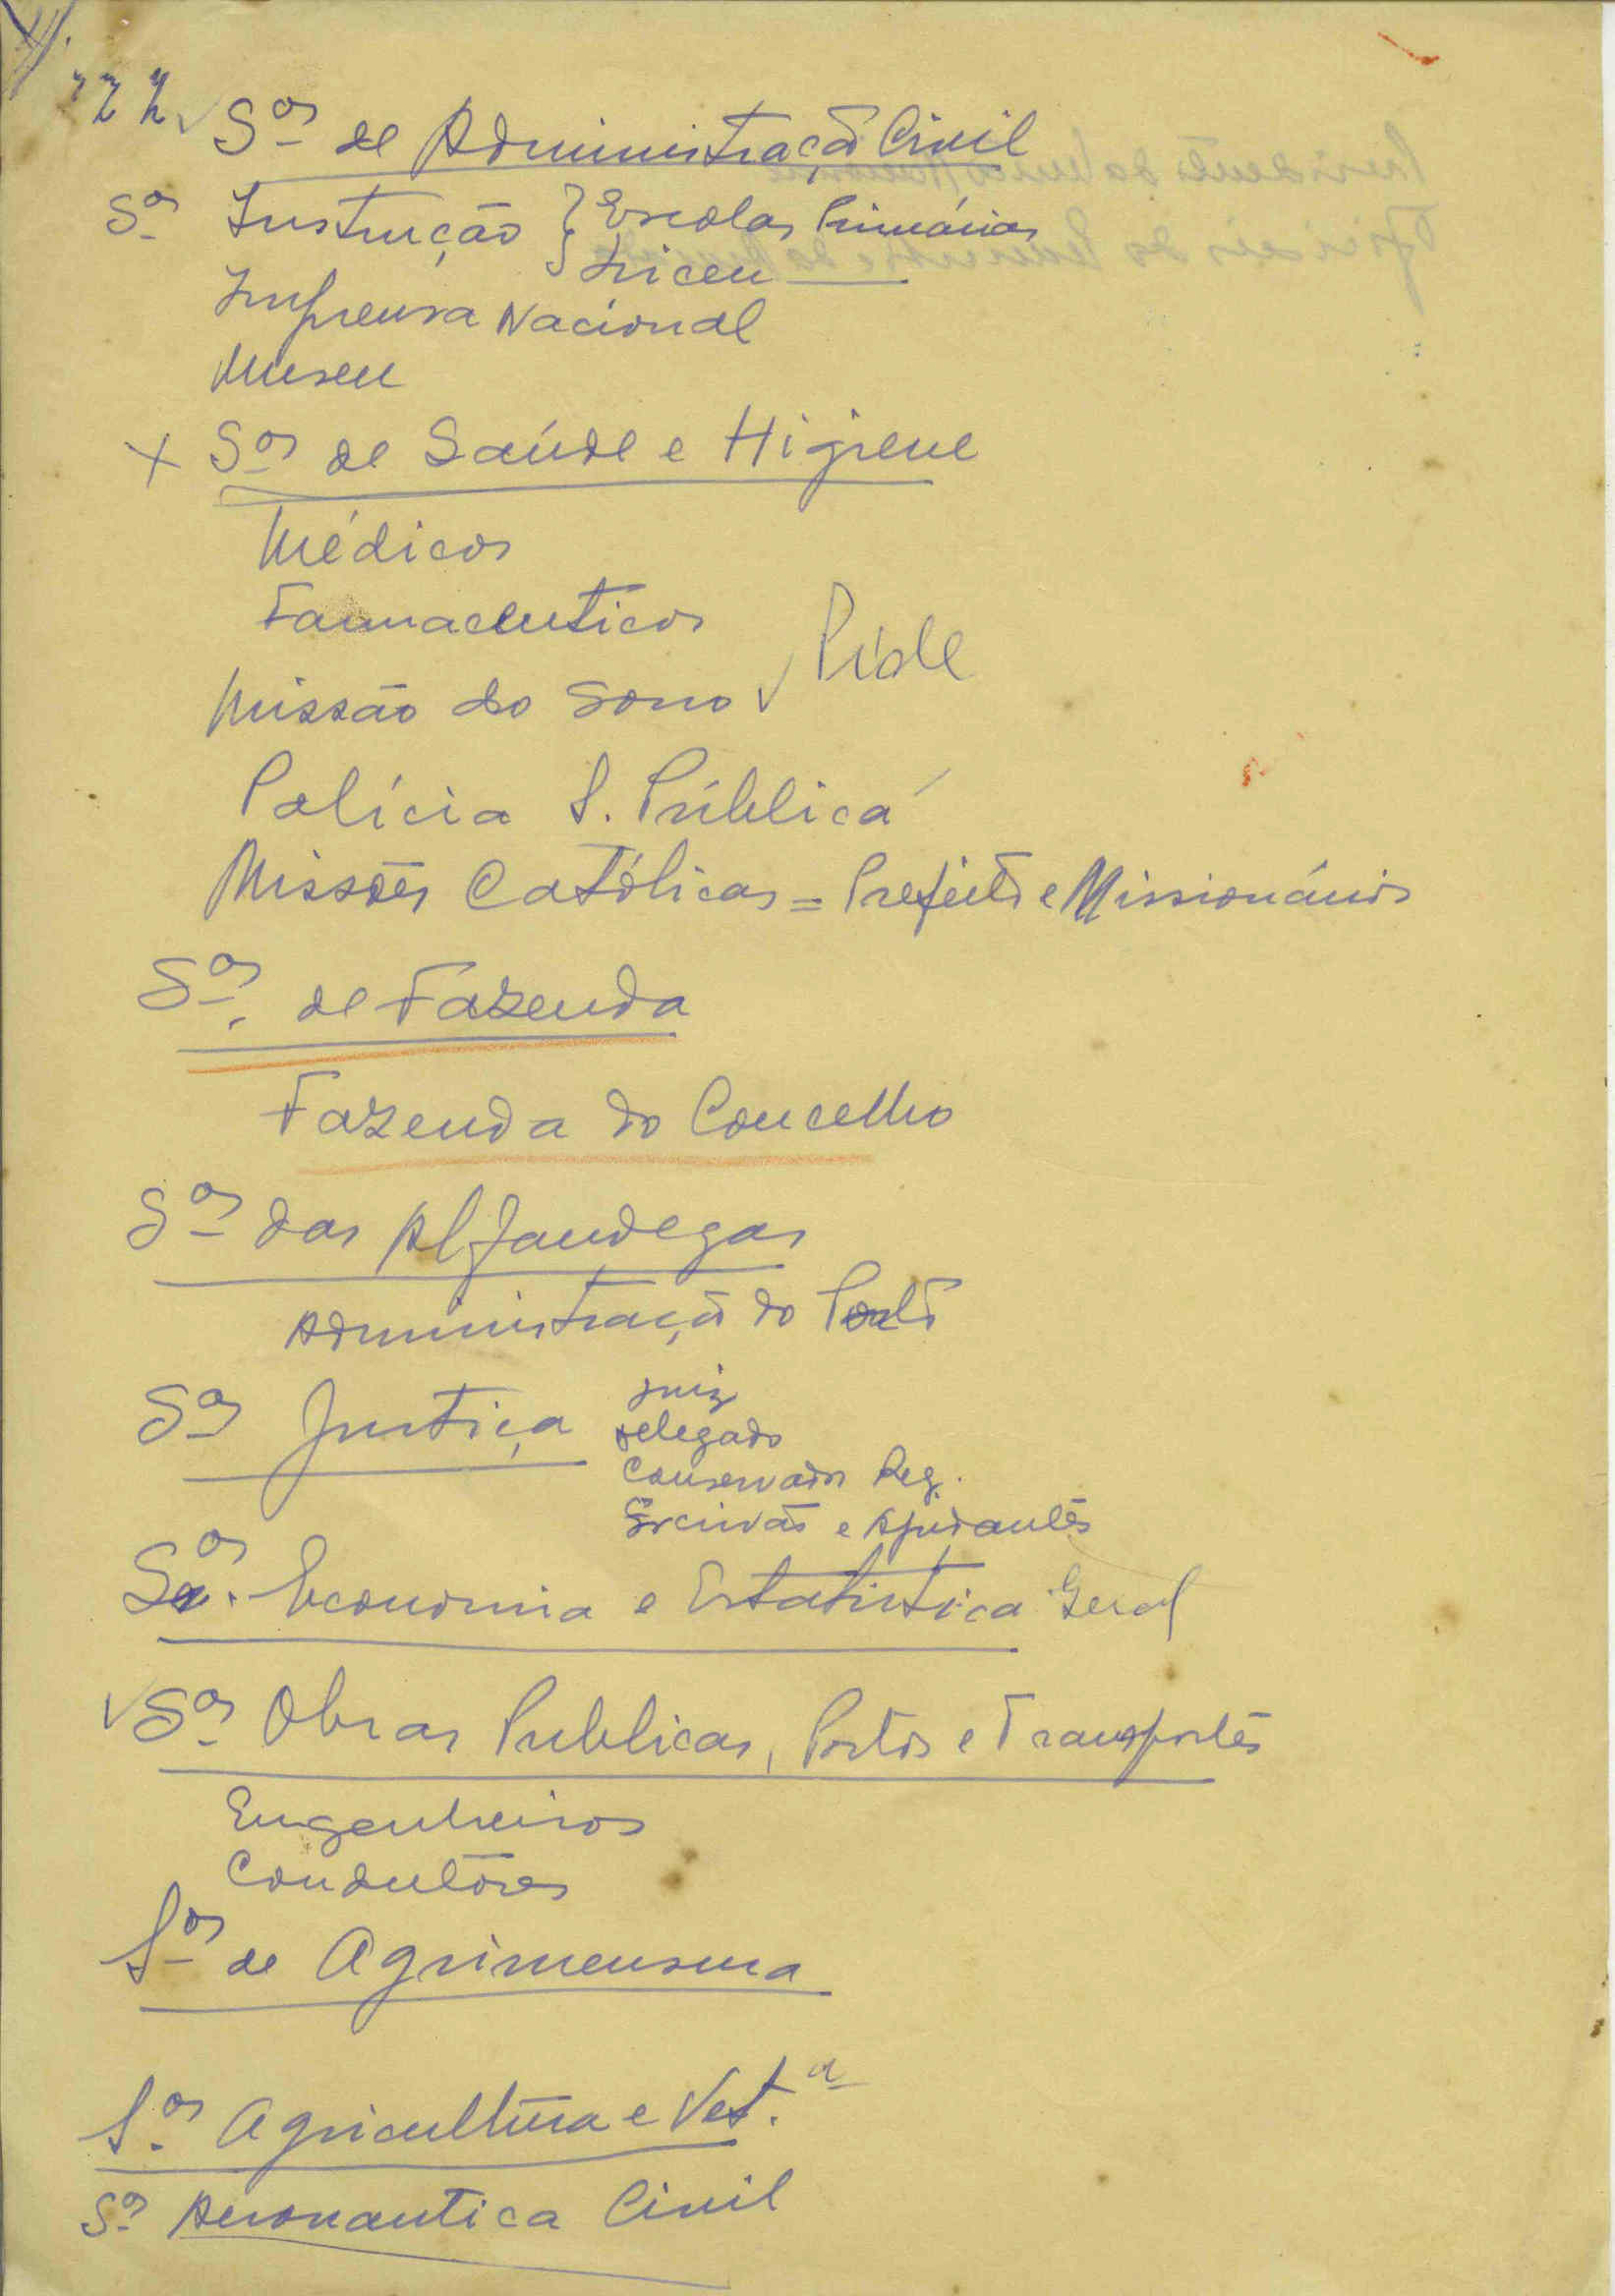 Sºs de Administração Civil
Sºs Instrução } Escolas Primárias
Liceu
Imprensa Nacional
Museu
X Sºs de Saúde e Higiene
Médicos
Farmaceuticos
Missão do Sono √ Pide
Polícia S. Pública
Missões Católicas = Prefeito e Missionários
Sºs. de Fazenda
Fazenda do Concelho
Sºs das Alfandegas
Administração do Porto
Sºs Justiça
Juiz
Delegado
Conservador Reg.
Escrivão e Ajudantes
Sºs. Economia e Estatistica Geral
√ Sºs. Obras Publicas, Portos e Transportes
Engenheiros
Condutores
Sºs de Agrimensura
Sºs. Agricultura e Vet.ª
Sºs. Aeronautica Civil